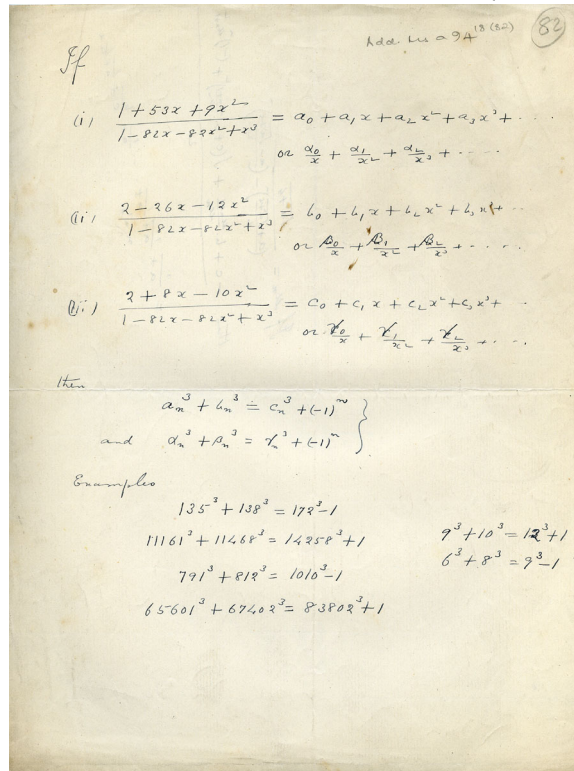 Add. Ms a 94 18 (82)
82
If
(i) (1 + 53x + 9x²)/(1 - 82x - 82x² + x³) = a₀ + a₁x + a₂x² + a₃x³ + ····
or α₀/x + α₁/x² + α₂/x³ + ·····
(ii) (2 - 26x - 12x²)/(1 - 82x - 82x² + x³) = b₀ + b₁x + b₂x² + b₃x³ + ···
or β₀/x + β₁/x² + β₂/x³ + ·····
(iii) (2 + 8x - 10x²)/(1 - 82x - 82x² + x³) = c₀ + c₁x + c₂x² + c₃x³ + ···
or γ₀/x + γ₁/x² + γ₂/x³ + ·····
then
aₙ³ + bₙ³ = cₙ³ + (-1)ⁿ
and αₙ³ + βₙ³ = γₙ³ + (-1)ⁿ }
Examples
135³ + 138³ = 172³ - 1
11161³ + 11468³ = 14258³ + 1
9³ + 10³ = 12³ + 1
791³ + 812³ = 1010³ - 1
6³ + 8³ = 9³ - 1
65601³ + 67402³ = 83802³ + 1